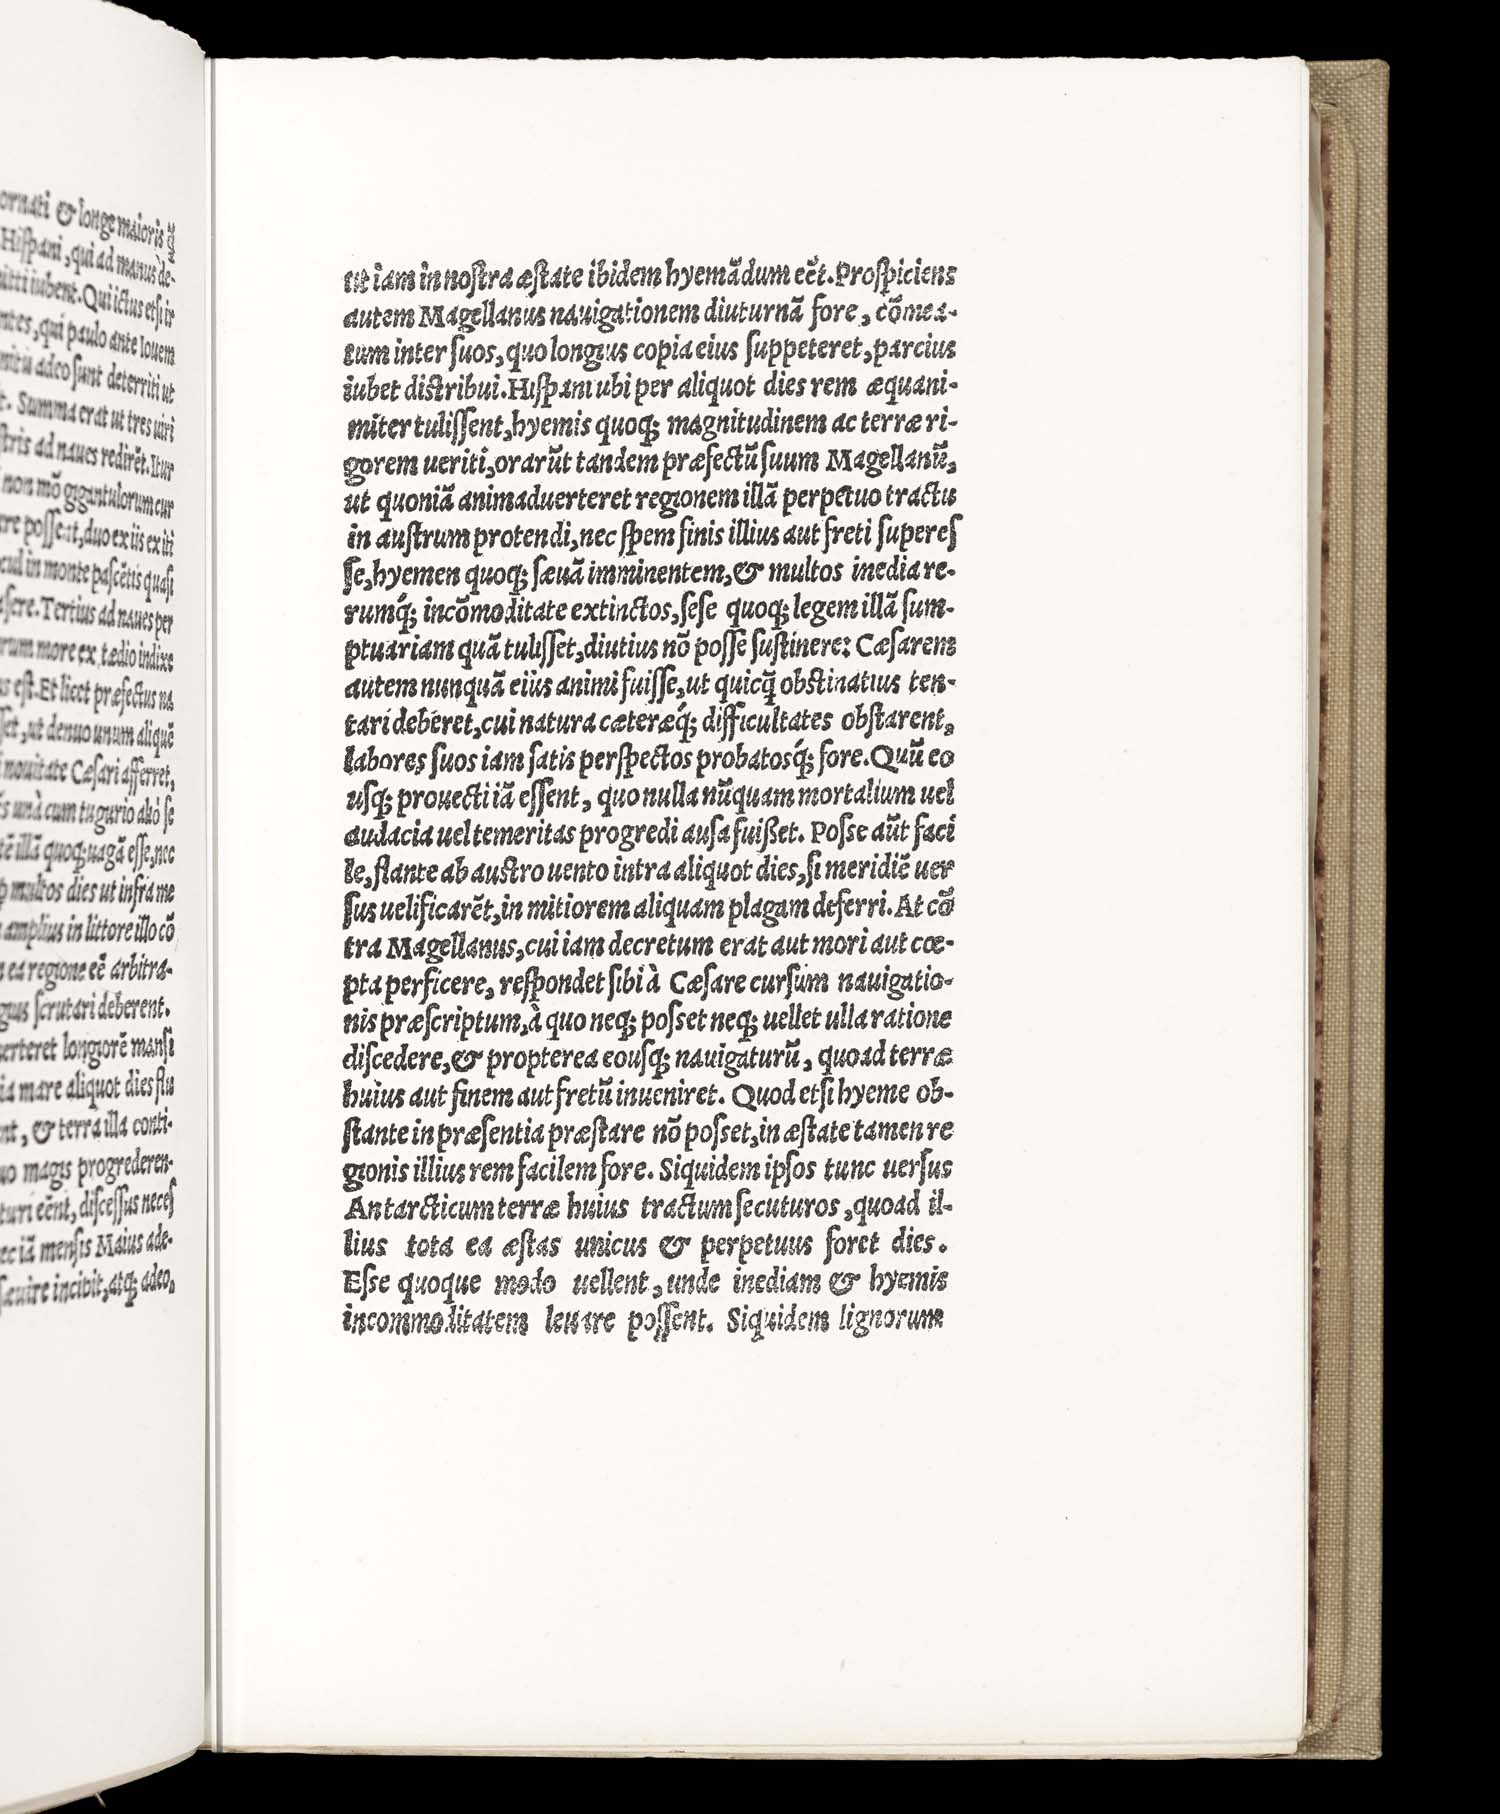 ornati & longe maioris
Hiſpani, qui ad manus de-
mitti iubent. Qui ictus etſi ir
ntes, qui paulo ante Iouem
mitu adeo ſunt deterriti ut
t. Summa erat ut tres uiri
ſtris ad naues redirēt. Itur
non mō gigantulorum cur
re poſſent, duo ex iis exiti
cul in monte paſcētis quaſi
aſcre. Tertius ad naues per
rum more ex tædio indixe
us eſt. Et licet præfectus na
ſet, ut denuo unum aliquē
nouitate Cæſari afferret,
s unà cum tugurio alió ſe
tē illā quoq; uagā eſſe, nec
multos dies ut infrà me
amplius in littore illo cō
ea regione eē arbitra-
gius ſcrutari deberent.
erteret longiorē manſi
ia mare aliquot dies flu
nt, & terra illa conti-
uo magis progrederen-
turi eēnt, diſceſſus neceſ
ec iā menſis Maius ade-
ſæuire incibit, atq; adeo,
ut iam in noſtra æſtate ibidem hyemādum eēt. Proſpiciens
autem Magellanus nauigationem diuturnā fore, cōmea-
tum inter ſuos, quo longius copia eius ſuppeteret, parcius
iubet diſtribui. Hiſpani ubi per aliquot dies rem æquani-
miter tuliſſent, hyemis quoq; magnitudinem ac terræ ri-
gorem ueriti, orarūt tandem præfectū ſuum Magellanū,
ut quoniā animaduerteret regionem illā perpetuo tractu
in auſtrum protendi, nec ſpem finis illius aut freti ſupereſ
ſe, hyemen quoq; ſæuā imminentem, & multos inedia re-
rumq́; incōmoditate extinctos, ſeſe quoq; legem illā ſum-
ptuariam quā tuliſſet, diutius nō poſſe ſuſtinere: Cæſarem
autem nunquā eiüs animi fuiſſe, ut quicq̄ obſtinatius ten-
tari deberet, cui natura cæteræq́; difficultates obſtarent,
labores ſuos iam ſatis perſpectos probatosq́; fore. Quū eo
uſq; prouecti iā eſſent, quo nulla nūquam mortalium uel
audacia uel temeritas progredi auſa fuißet. Poſſe aūt faci
le, flante ab auſtro uento intra aliquot dies, ſi meridiē uer
ſus uelificarēt, in mitiorem aliquam plagam deferri. At cō
tra Magellanus, cui iam decretum erat aut mori aut cœ-
pta perficere, reſpondet ſibi à Cæſare curſum nauigatio-
nis præſcriptum, à quo neq; poſſet neq; uellet ulla ratione
diſcedere, & propterea eouſq; nauigaturū, quoad terræ
huius aut finem aut fretū inueniret. Quod etſi hyeme ob-
ſtante in præſentia præſtare nō poſſet, in æſtate tamen re
gionis illius rem facilem fore. Siquidem ipſos tunc uerſus
Antarcticum terræ huius tractum ſecuturos, quoad il-
lius tota ea æſtas unicus & perpetuus foret dies.
Eſſe quoque modo uellent, unde inediam & hyemis
incommoditatem leuare poſſent. Siquidem lignorum